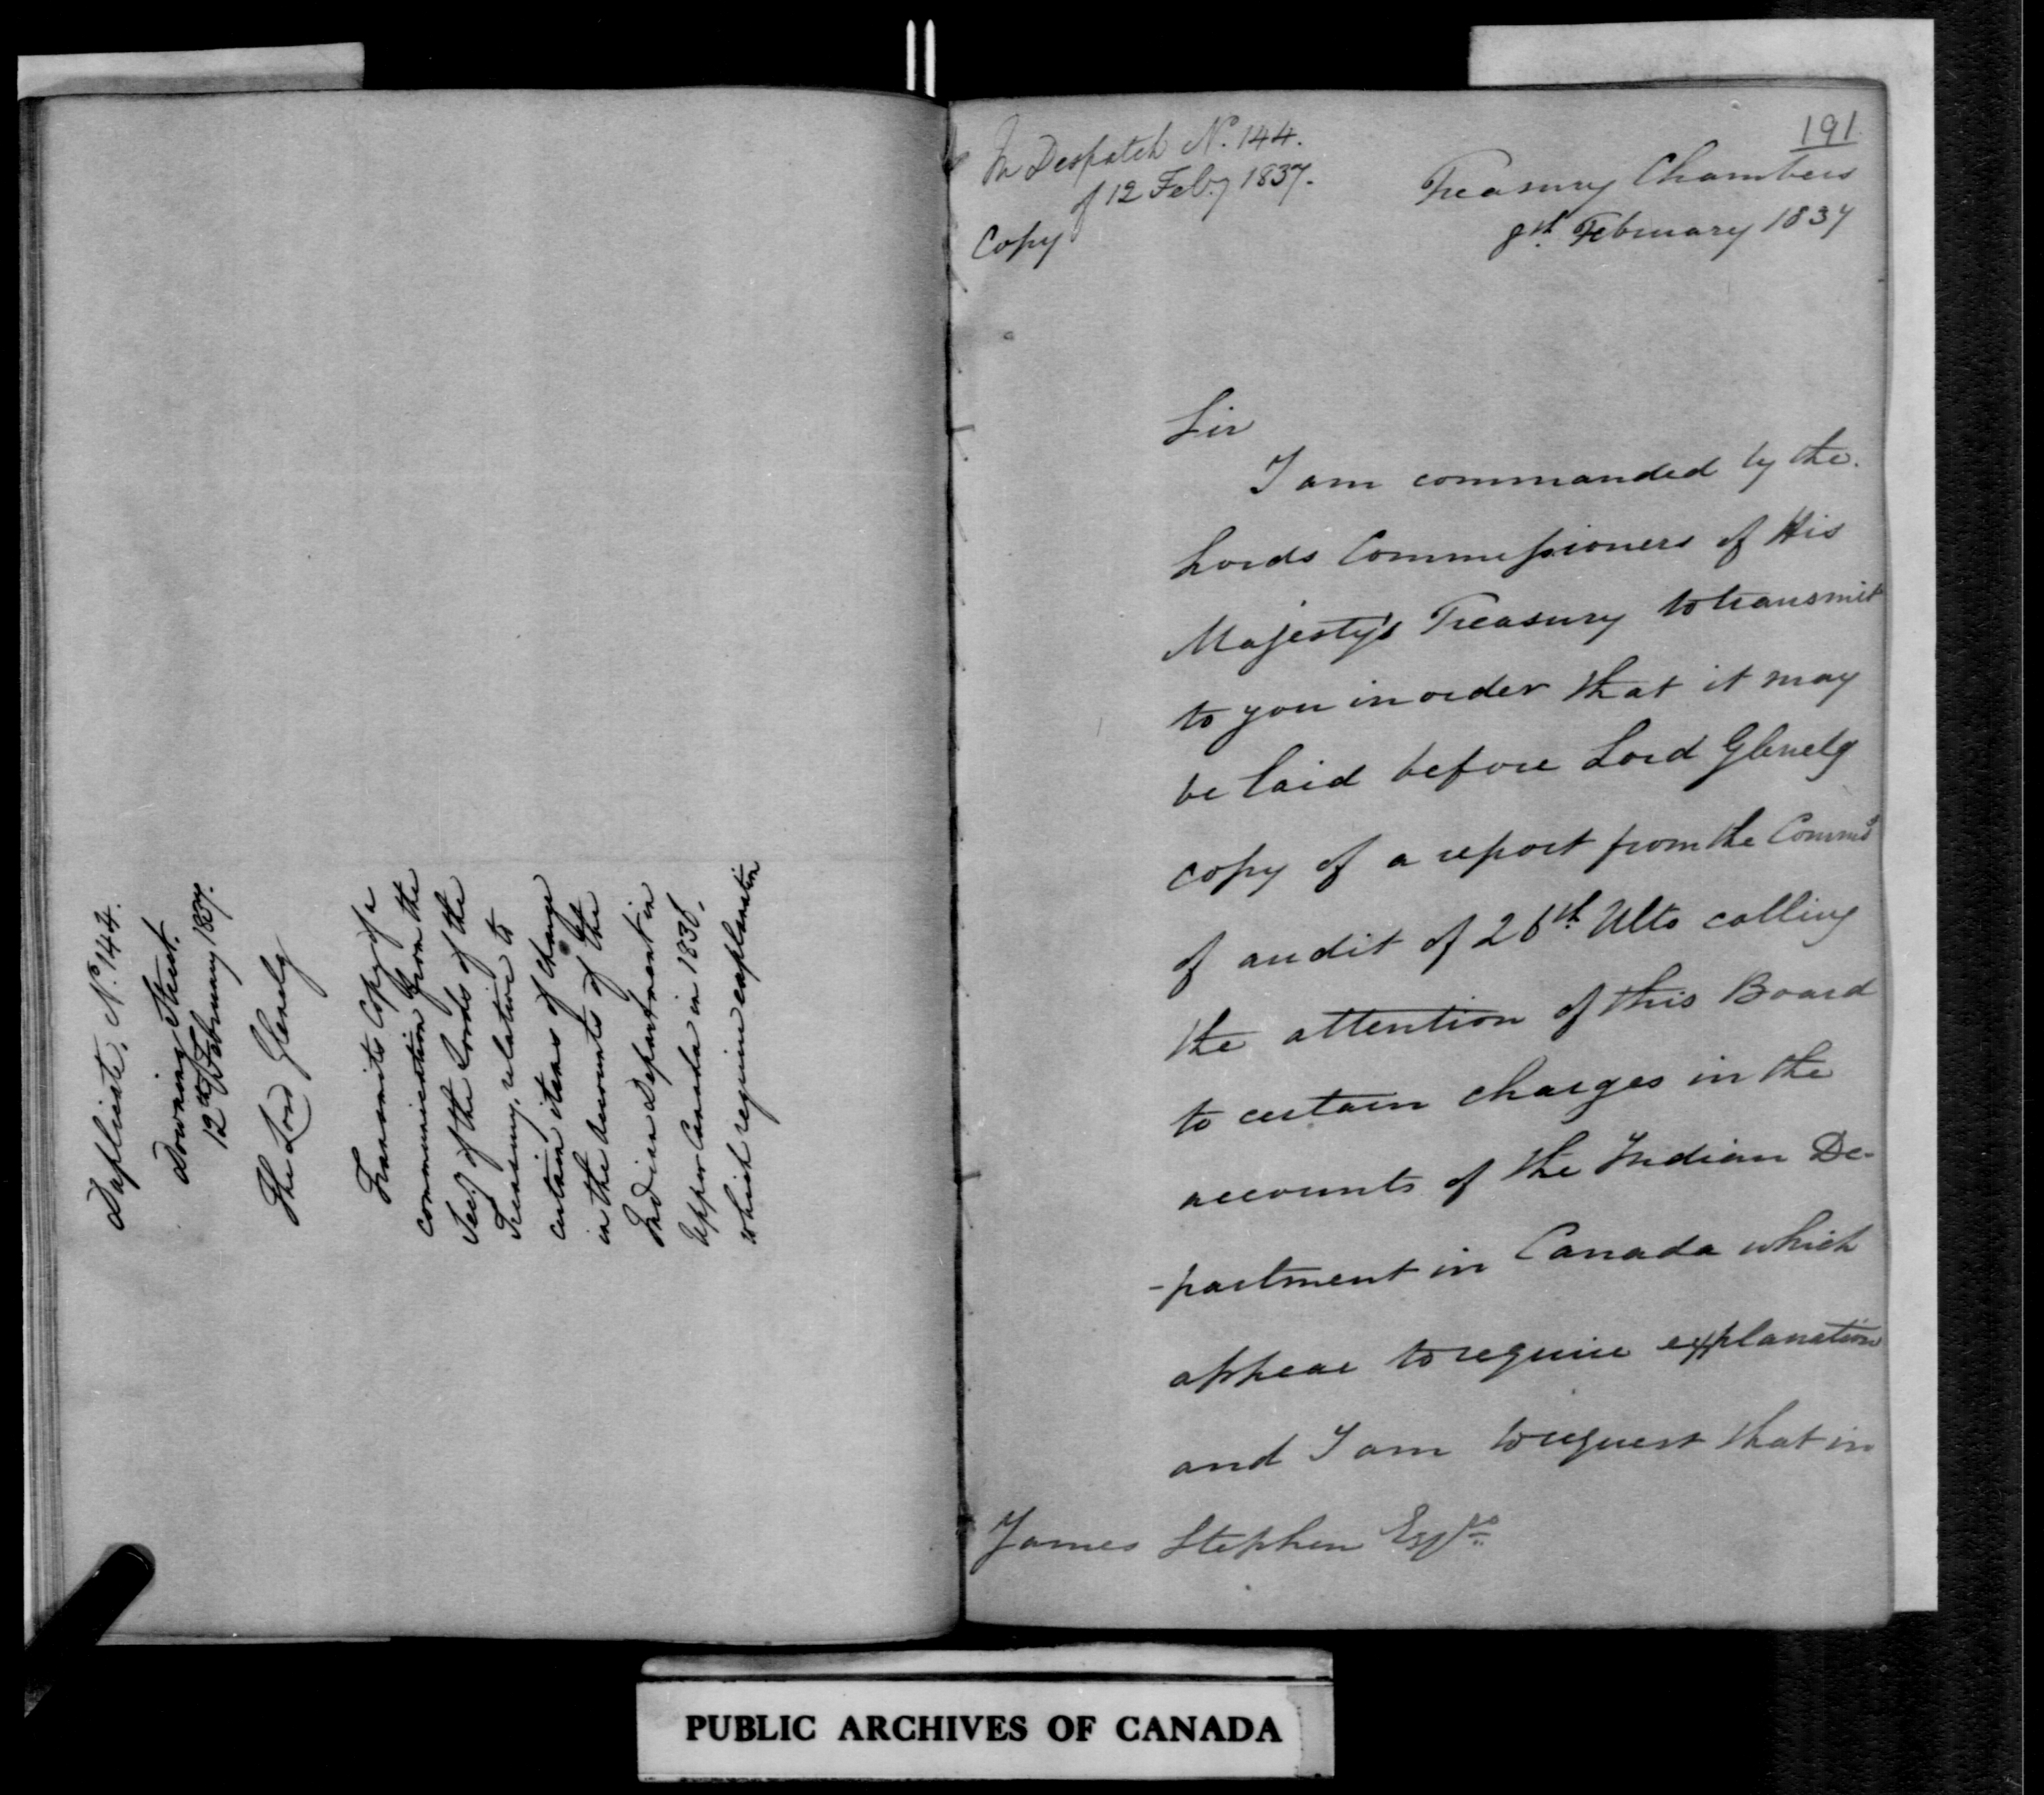 Duplicate. No. 144.
Downing Street.
12th February 1837.
The Lord Glenelg
Transmits Copy of a
communication from the
Secy of the Lords of the
Treasury, relative to
certain items of charge
in the Accounts of the
Indian Department in
Upper Canada in 1836,
which require explanation
191
In Despatch No. 144.
of 12 Feby 1837.
Copy
Treasury Chambers
8th February 1837
Sir
I am commanded by the
Lords Commissioners of His
Majesty's Treasury to transmit
to you in order that it may
be laid before Lord Glenelg
copy of a report from the Commrs
of audit of 26th Ulto calling
the attention of this Board
to certain charges in the
accounts of the Indian De-
-partment in Canada which
appear to require explanation
and I am to request that in
James Stephen Esqre
PUBLIC ARCHIVES OF CANADA